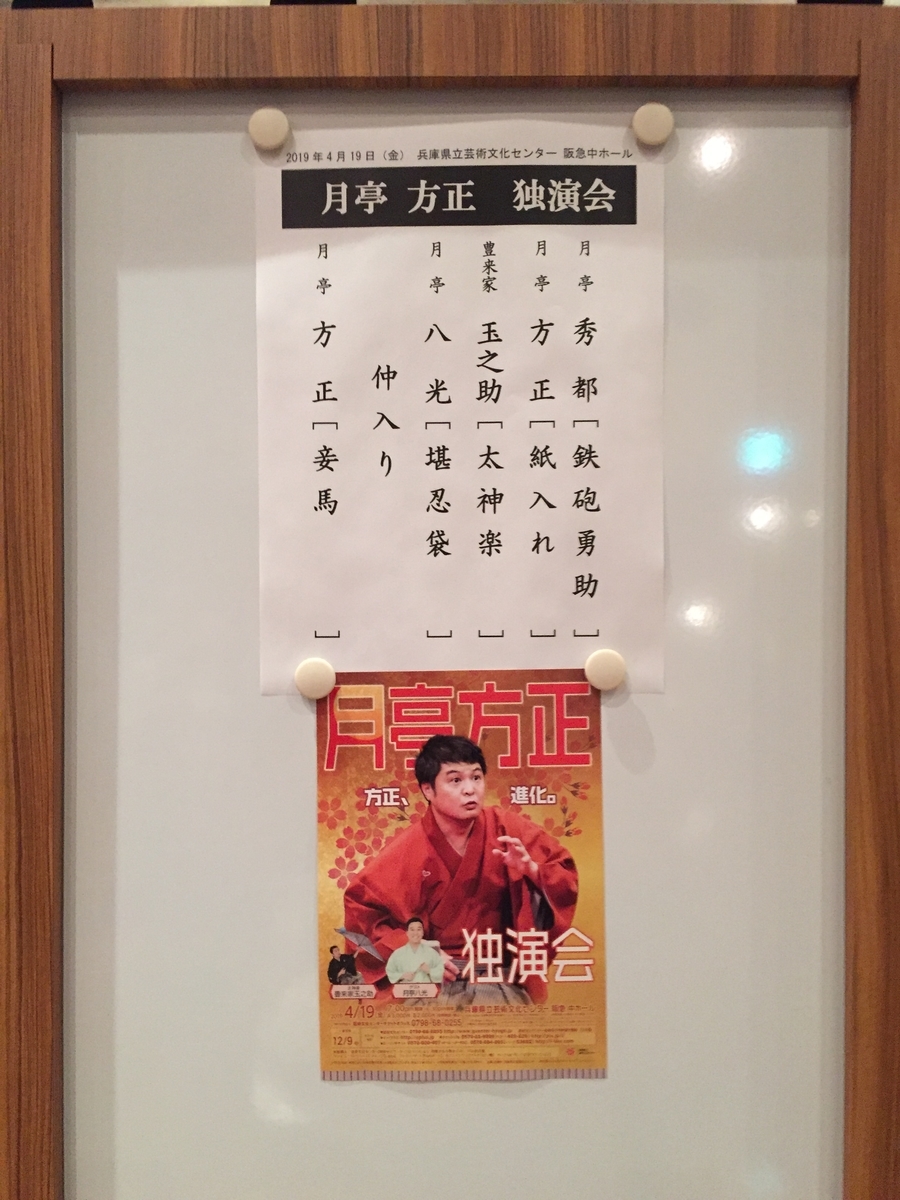 2019年4月19日（金） 兵庫県立芸術文化センター 阪急中ホール
月亭 方正 独演会
月亭 秀都［鉄砲勇助］
月亭 方正［紙入れ］
豊来家 玉之助［太神楽］
月亭 八光［堪忍袋］
仲入り
月亭 方正［妾馬］
月亭方正
方正、進化。
独演会
豊来家玉之助
月亭八光
4/19
兵庫県立芸術文化センター 阪急 中ホール
0798-68-0255
12/9